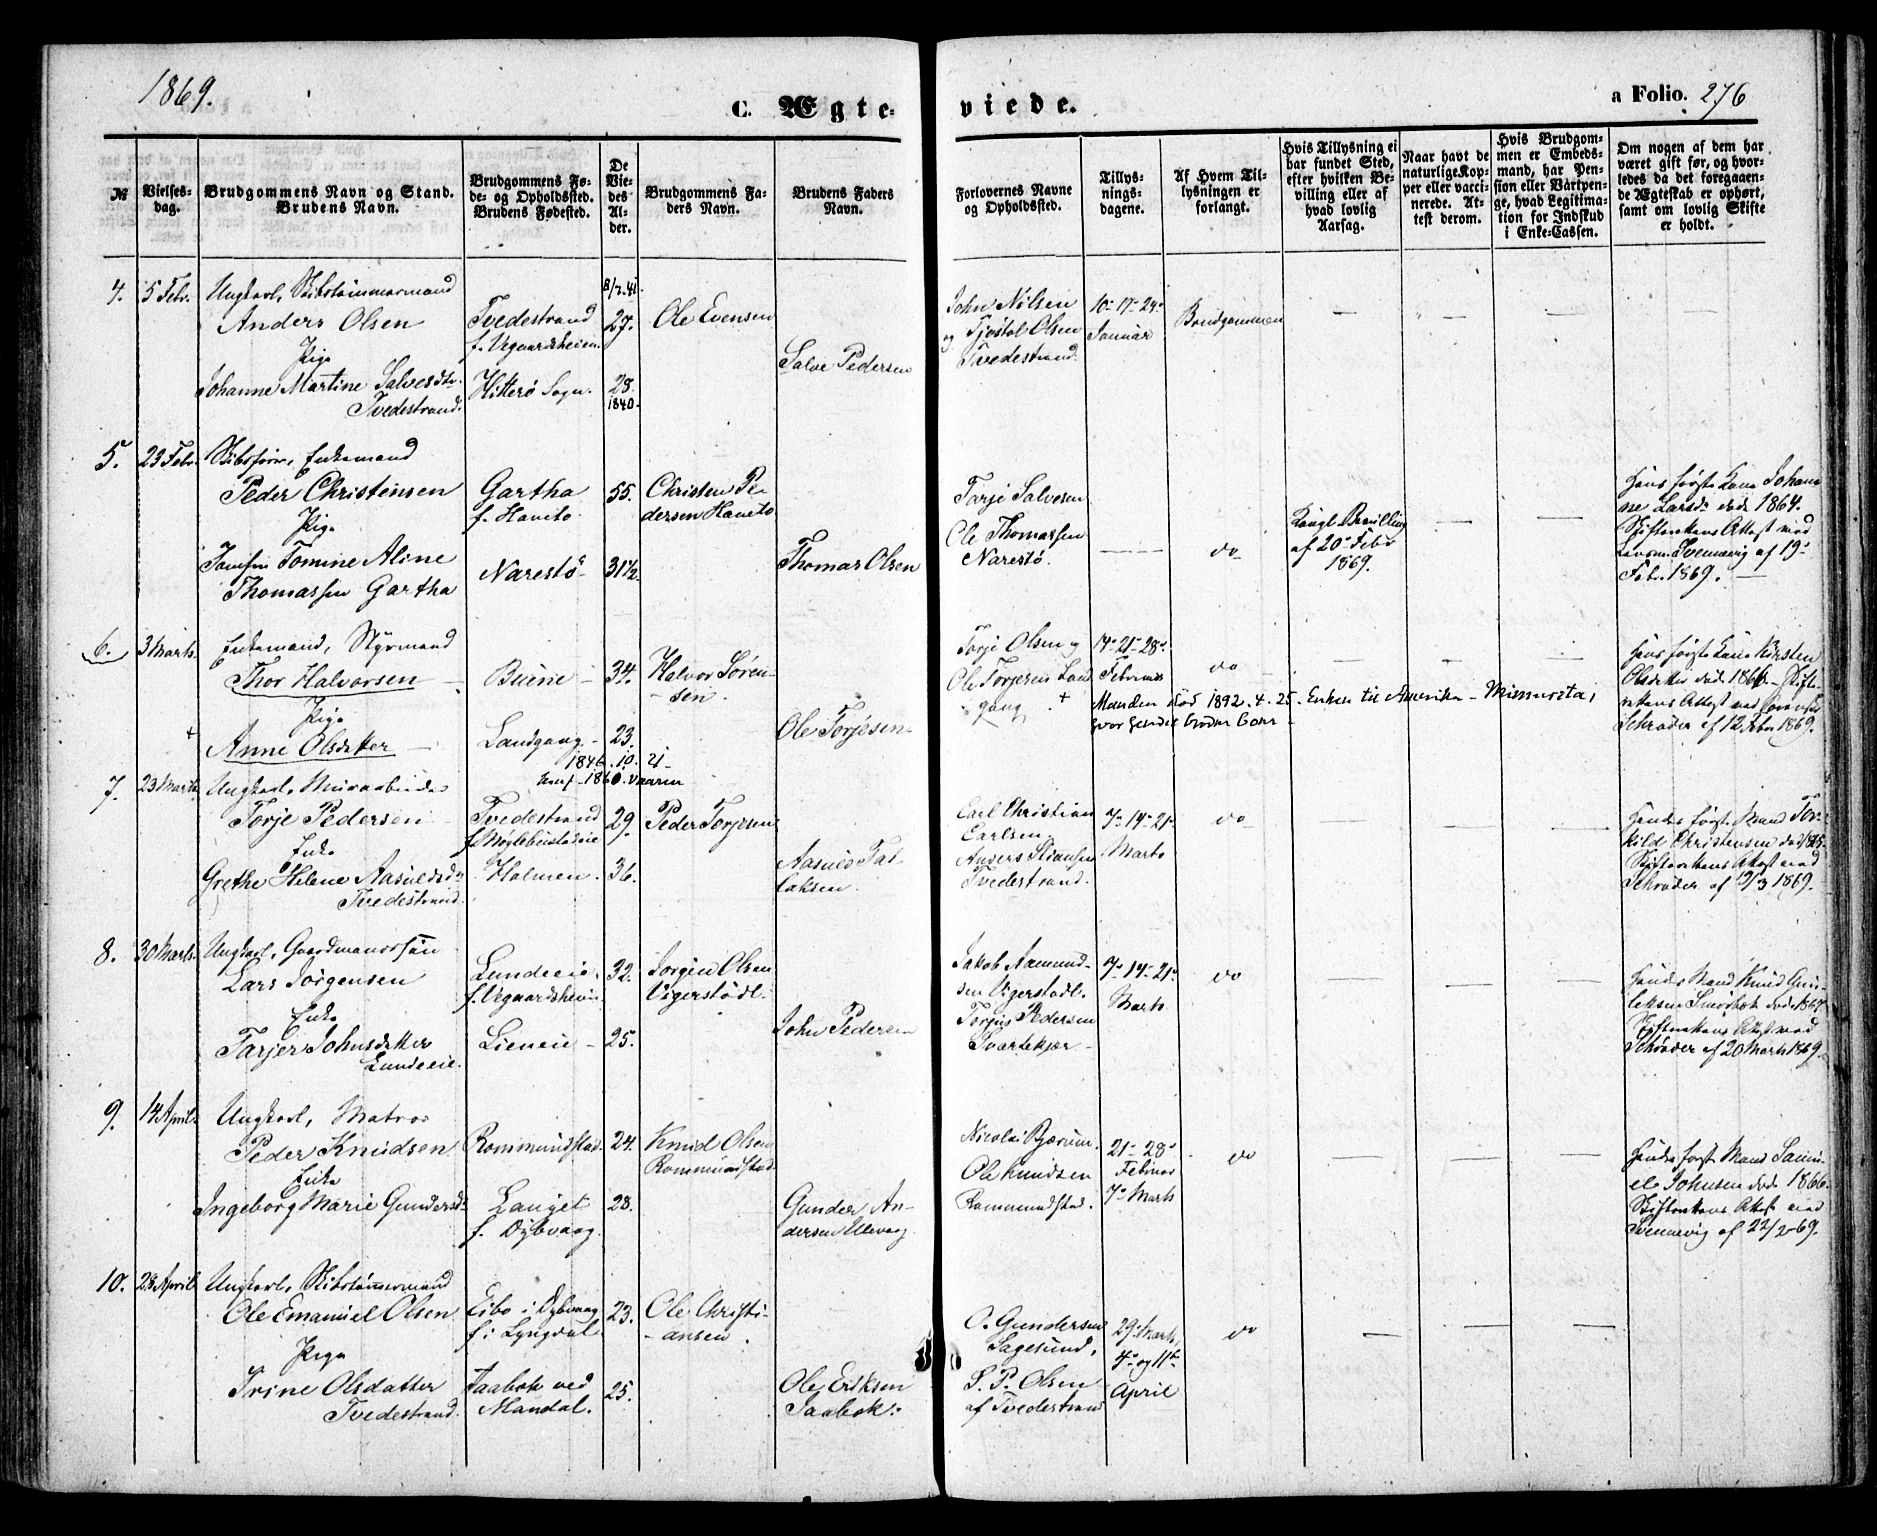 1869.
C. Ægteviede.
a Folio. 276
№
Vielsesdag.
Brudgommens Navn og Stand.
Brudens Navn.
Brudgommens Føde- og Opholdssted.
Brudens Fødested.
De Viedes Alder.
Brudgommens Faders Navn.
Brudens Faders Navn.
Forlovernes Navne og Opholdssted.
Tillysningsdagene.
Af Hvem Tillysningen er forlangt.
Hvis Tillysning ei har fundet Sted, efter hvilken Bevilling eller af hvad lovlig Aarsag.
Naar havt de naturlige Kopper eller vaccinerede. Attest derom.
Hvis Brudgommen er Embedsmand, har Pension eller Vartpenge, hvad Legitimation for Indskud i Enke-Cassen.
Om nogen af dem har været gift før, og hvorledes da det foregaaende Ægteskab er ophørt, samt om lovlig Skifte er holdt.
4. 5 Febr.
Ungkarl, Skibstømmermand
Anders Olsen
Pige
Johanne Martine Salvesdtr.
Tvedestrand.
Tvedestrand
f. Vegaardsheien.
Hitterø Sogn.
27.
28.
1840.
Ole Evensen
Salve Pedersen
John Nilsen
og Tjostol Olsen
Tvedestrand.
10- 17- 24-
Januar
Brudgommen
5. 23 Febr.
Skibsfører, Enkemand
Peder Christensen
Pige
Jomfru Tomine Aline
Thomassen Gartha
Gartha
f. Haneto
Narestø
55.
31½.
Christen Pedersen Haneto
Thomas Olsen
Torje Salvesen
Ole Thomassen
Narestø.
do
Kongl Bevilling
af 20de Febr
1869.
Hans første Kone Johanne Larsd: døde 1864.
Skifterettens Attest ved
Svennevig af 19de
Febr. 1869.
6. 3 Marts.
Enkemand, Styrmand
Thor Halvorsen
Pige
Anne Olsdatter
Buene
Landgang
34.
23.
1846.10.21
Konf-1860. Vaaren
Halvor Sørensen.
Ole Torjesen
Torje Olsen og
Ole Torjesen Landgang
14- 21- 28-
Februar
do
Manden død 1892.4.25. Enken til Amerika - Minnesota,
hvor hendes brødre boer
Hans første Kone Kirsten
Olsdatter døde 1866 - Skifterettens Attest ved
Schrøder af 12 Febr 1869.
7. 23 Marts.
Ungkarl, Murarbeider
Torje Pedersen
Enke
Grethe Helene Aasuldsdr
Tvedestrand.
Tvedestrand
Holmen.
29.
36.
Peder Torjesen
Carl Christian
Carlsen
Anders Stiansen
Tvedestrand.
7- 14- 21-
Marts
do
Hendes første Mand Torkild Christensen
Skifterettens Attest ved
Schrøder af 12/3 1869.
8. 30 Marts.
Ungkarl, Gaardmandssøn
Lars Jørgensen
Enke
Tarjer Johnsdatter
Lundeeie.
Lundeeie.
f. Vegaardsheien
Lieneie
32.
25.
Jørgen Olsen
Vigerstøl.
John Pedersen
Jakob Aamundsen Vigerstøl.
Torjus Pedersen
Svartekjær
7- 14- 21-
Marts
do
Hendes Mand Knud
døde 1867
Skifterettens Attest ved
Schrøder af 20 Marts 1869.
9. 14 April.
Ungkarl, Matros
Peder Knudsen
Enke
Ingeborg Marie Gundersd.
Rommundstad.
Langet
f. Dybvaag.
24.
28.
Knud Olsen
Rommundstad.
Gunder Andersen
Nicolai Bjørum.
Ole Knudsen
Rommundstad.
21- 28-
Februar
7- Marts
do
Hendes først Mand
Johnsen døde 1866.
Skifterettens Attest ved
Svennevig af 22/2-69.
10. 28 April
Ungkarl, Skibstømmermand
Ole Emanuel Olsen
Pige
Trine Olsdatter
Tvedestrand.
Eibo i Dybvaag
f: i Lyngdal.
Faabok ved
Mandal.
23.
25.
Ole Christiansen.
Ole Eriksen
Faabok.
O. Gundersen
Sagesund,
S. P. Olsen
af Tvedestrand
29- Marts
4- og 11te
April
do